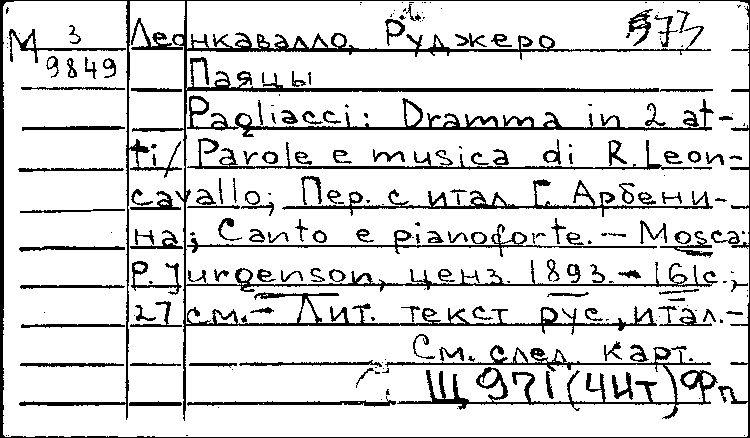 М 3 Леонкавалло, Руджеро 573
9849 Паяцы
Pagliacci: Dramma in 2 at-
ti/ Parole e musica di R. Leon-
cavallo; Пер. с итал. Г. Арбени-
на; Canto e pianoforte. — Mosca:
P. Jurgenson, ценз. 1893. — 161 с.;
27 см. — Лит. текст рус., итал. —
См. след. карт.
Щ 971(4Ит)Фп